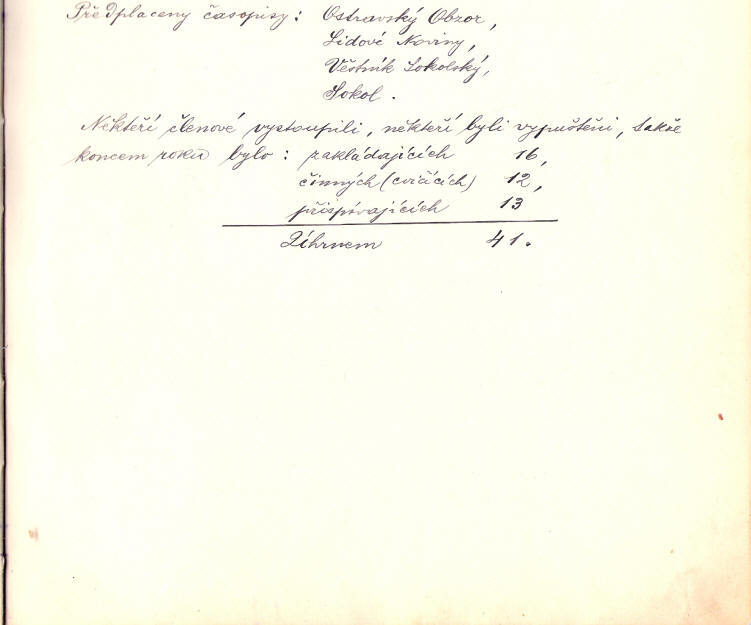 Předplaceny časopisy: Ostravský Obzor,
Lidové Noviny,
Věstník Sokolský,
Sokol.
Někteří členové vystoupili, někteří byli vypuštěni, takže
koncem roku bylo: zakládajících 16,
činných (cvičících) 12,
přispívajících 13
Úhrnem 41.